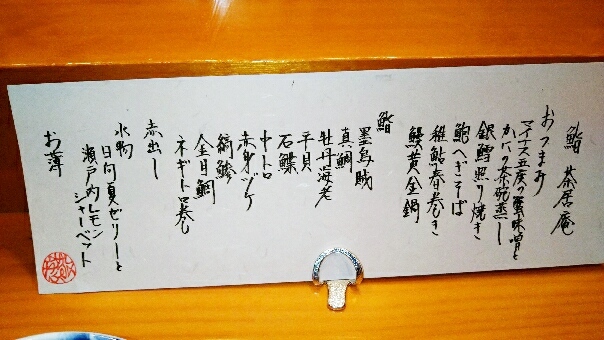 鮨 茶居庵
おつまみ
マイナス五度の蟹味噌と
かにの茶碗蒸し
銀鱈照り焼き
鮑へぎそば
稚鮎春巻き
鰻黄金鍋
鮨
墨烏賊
真鯛
牡丹海老
平貝
石鰈
中トロ
赤身ヅケ
縞鯵
金目鯛
ネギトロ巻
赤出し
水物
日向夏ゼリーと
瀬戸内レモン
シャーベット
お薄